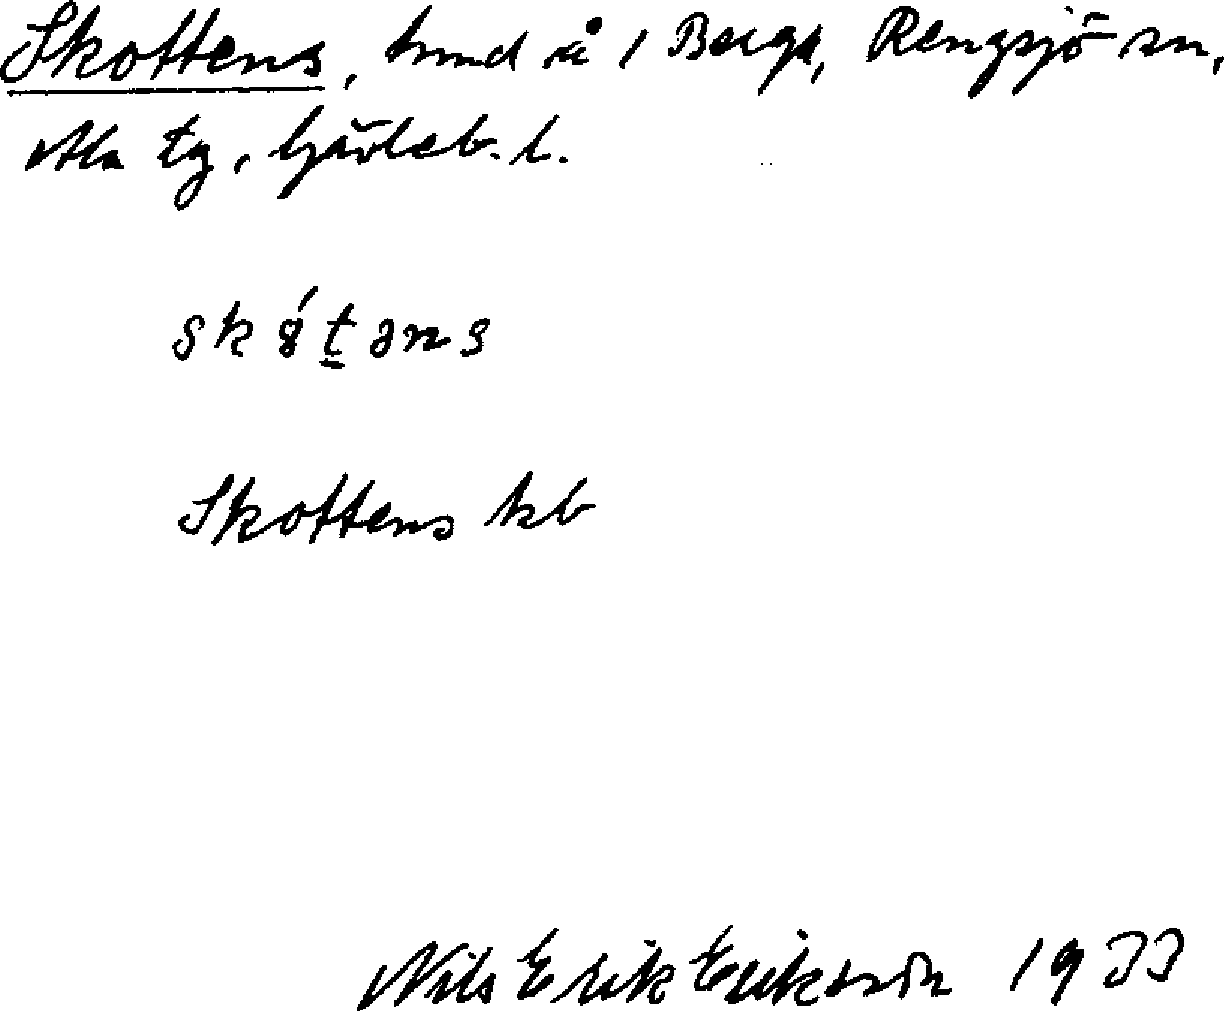 Skottens, hmd å i Berge, Rengsjö sn,
Ala tg, Gävleb. l.
skótəns
Skottens kb
Nils Erik Eriksson 1933